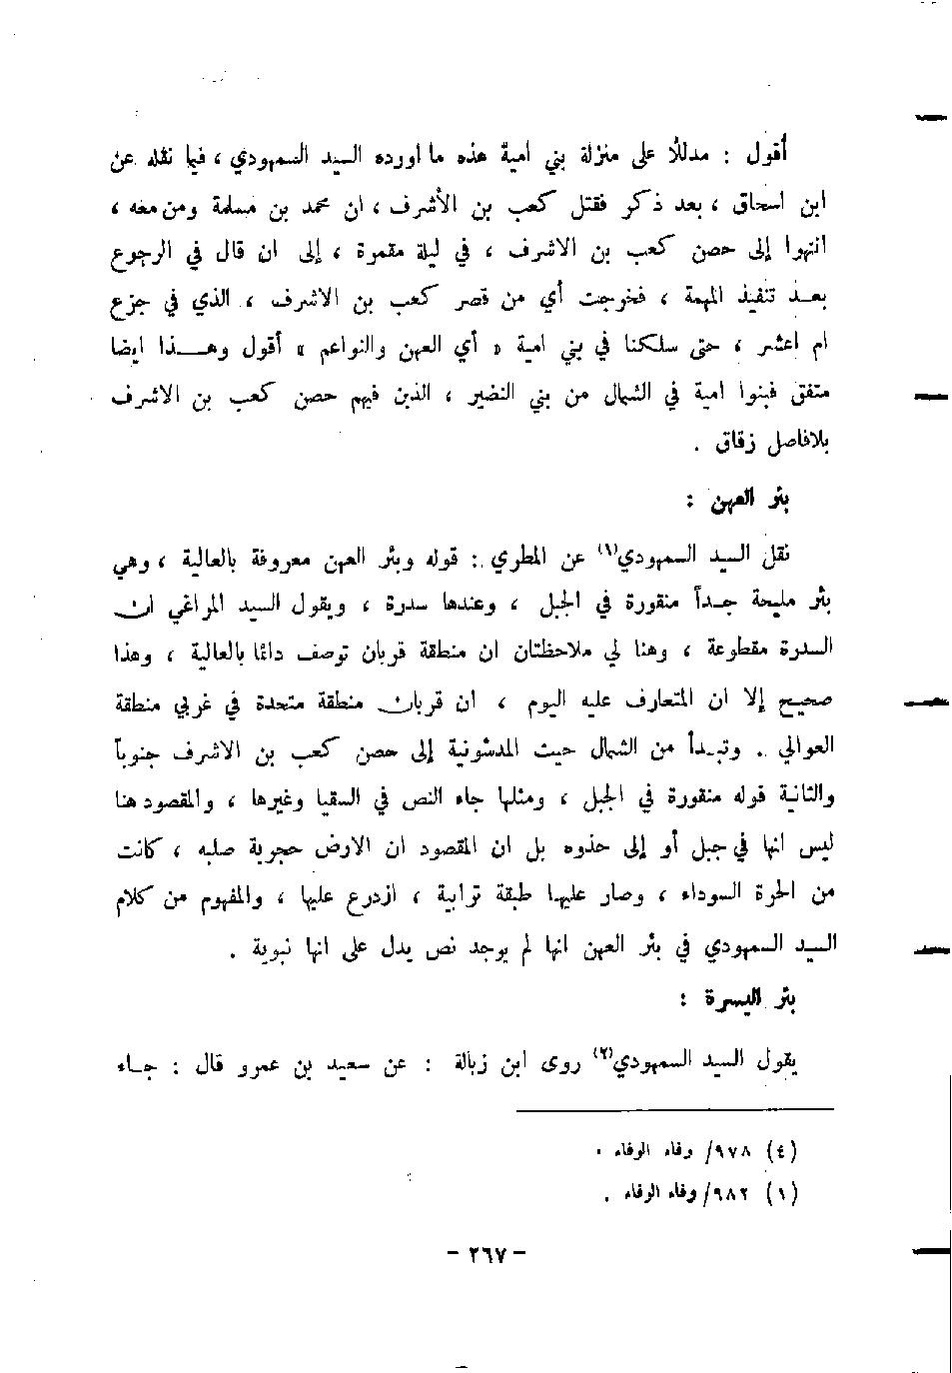 أقول : مدللًا على منزلة بني امية هذه ما اورده السيد السمهودي ، فيما نقله عن
ابن اسحاق ، بعد ذكر فقتل كعب بن الأشرف ، ان محمد بن مسلمة ومن معه ،
انتهوا إلى حصن كعب بن الاشرف ، في ليلة مقمرة ، إلى ان قال في الرجوع
بعد تنفيذ المهمة ، فخرجت أي من قصر كعب بن الاشرف ، الذي في جزع
ام اعشر ، حتى سلكنا في بني امية « أي العهن والنواعم » أقول وهذا ايضا
متفق فبنوا امية في الشمال من بني النضير ، الذين فيهم حصن كعب بن الاشرف
بلافاصل زقاق .
بئر العهن :
نقل السيد السمهودي(١) عن المطري : قوله وبئر العهن معروفة بالعالية ، وهي
بئر مليحة جداً منقورة في الجبل ، وعندها سدرة ، ويقول السيد المراغي ان
السدرة مقطوعة ، وهنا لي ملاحظتان ان منطقة قربان توصف دائما بالعالية ، وهذا
صحيح إلا ان المتعارف عليه اليوم ، ان قربان منطقة متحدة في غربي منطقة
العوالي . وتبدأ من الشمال حيث المدشونية إلى حصن كعب بن الاشرف جنوباً
والثانية قوله منقورة في الجبل ، ومثلها جاء النص في السقيا وغيرها ، والمقصود هنا
ليس انها في جبل أو إلى حذوه بل ان المقصود ان الارض حجرية صلبه ، كانت
من الحرة السوداء ، وصار عليها طبقة ترابية ، ازدرع عليها ، والمفهوم من كلام
السيد السمهودي في بئر العهن انها لم يوجد نص يدل على انها نبوية .
بئر اليسرة :
يقول السيد السمهودي(٢) روى ابن زبالة : عن سعيد بن عمرو قال : جاء
(٤) ٩٧٨/ وفاء الوفاء .
(١) ٩٨٢/ وفاء الوفاء .
- ٢٦٧ -